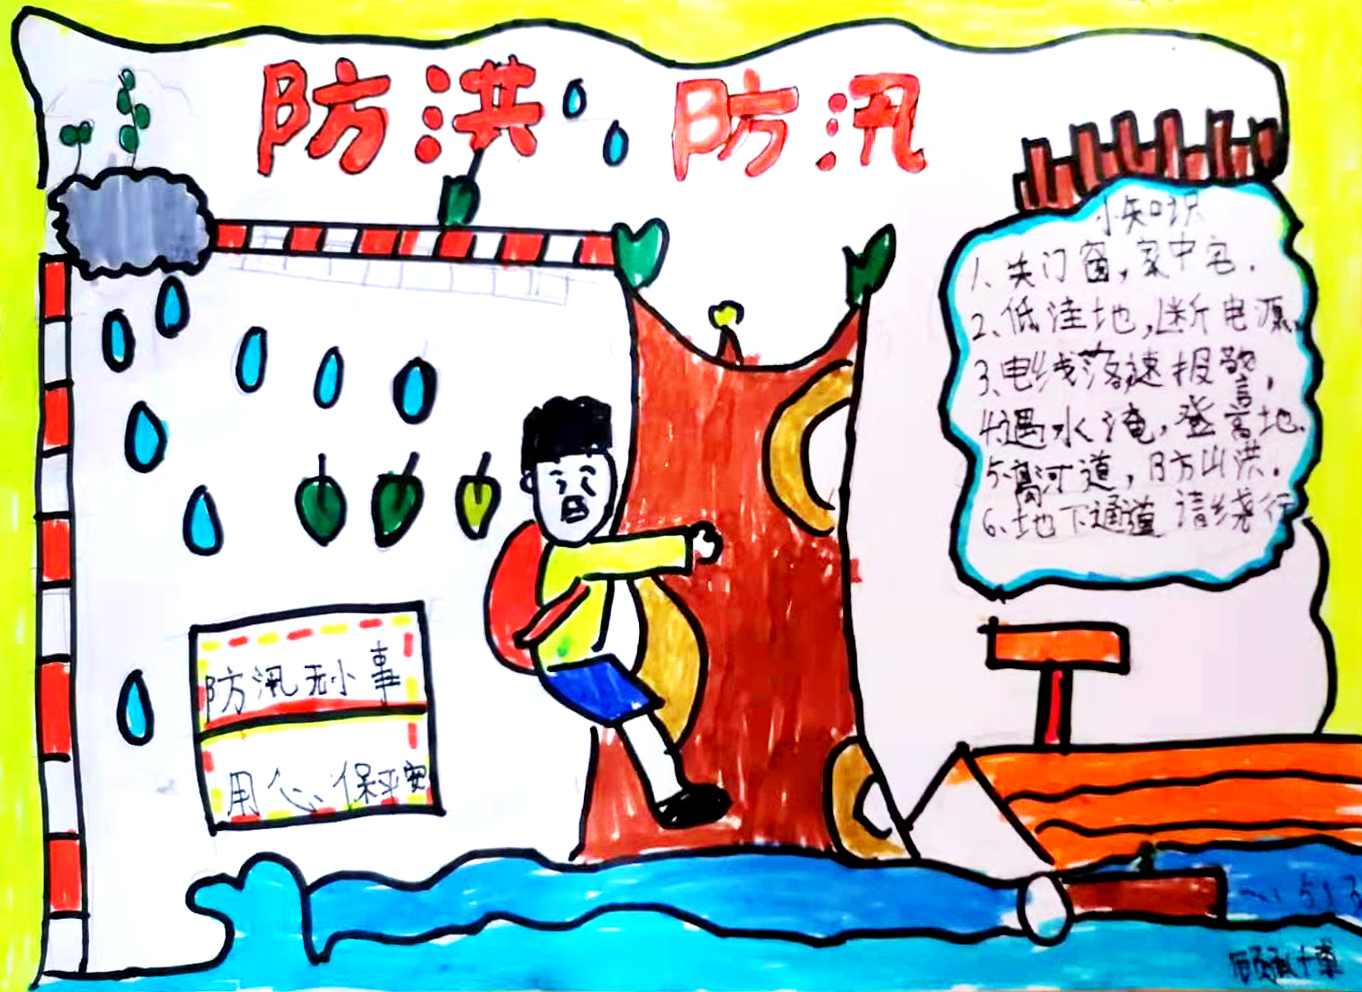 防洪 防汛
小知识
1、关门窗，家中宅.
2、低洼地，断电源.
3、电线落，速报警，
4.遇水淹，登高地.
5.离河道，防山洪.
6、地下通道 请绕行
防汛无小事
用心保平安